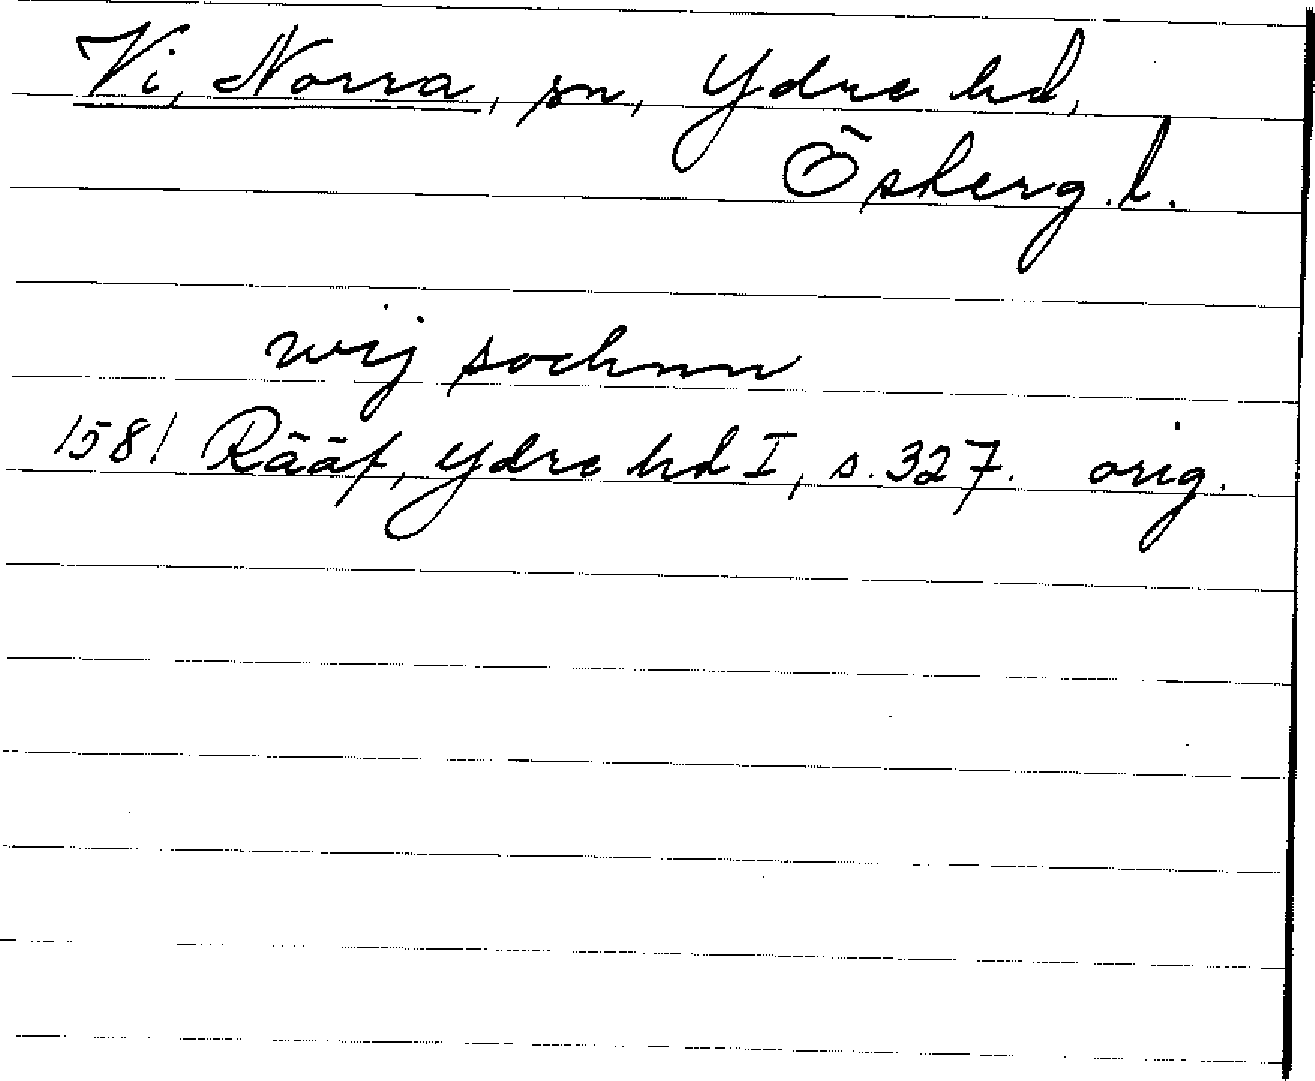 Vi, Norra, sn, Ydre hd,
Österg. l.
wij sochnn
1581 Rääf, Ydre hd I, s. 327. orig.